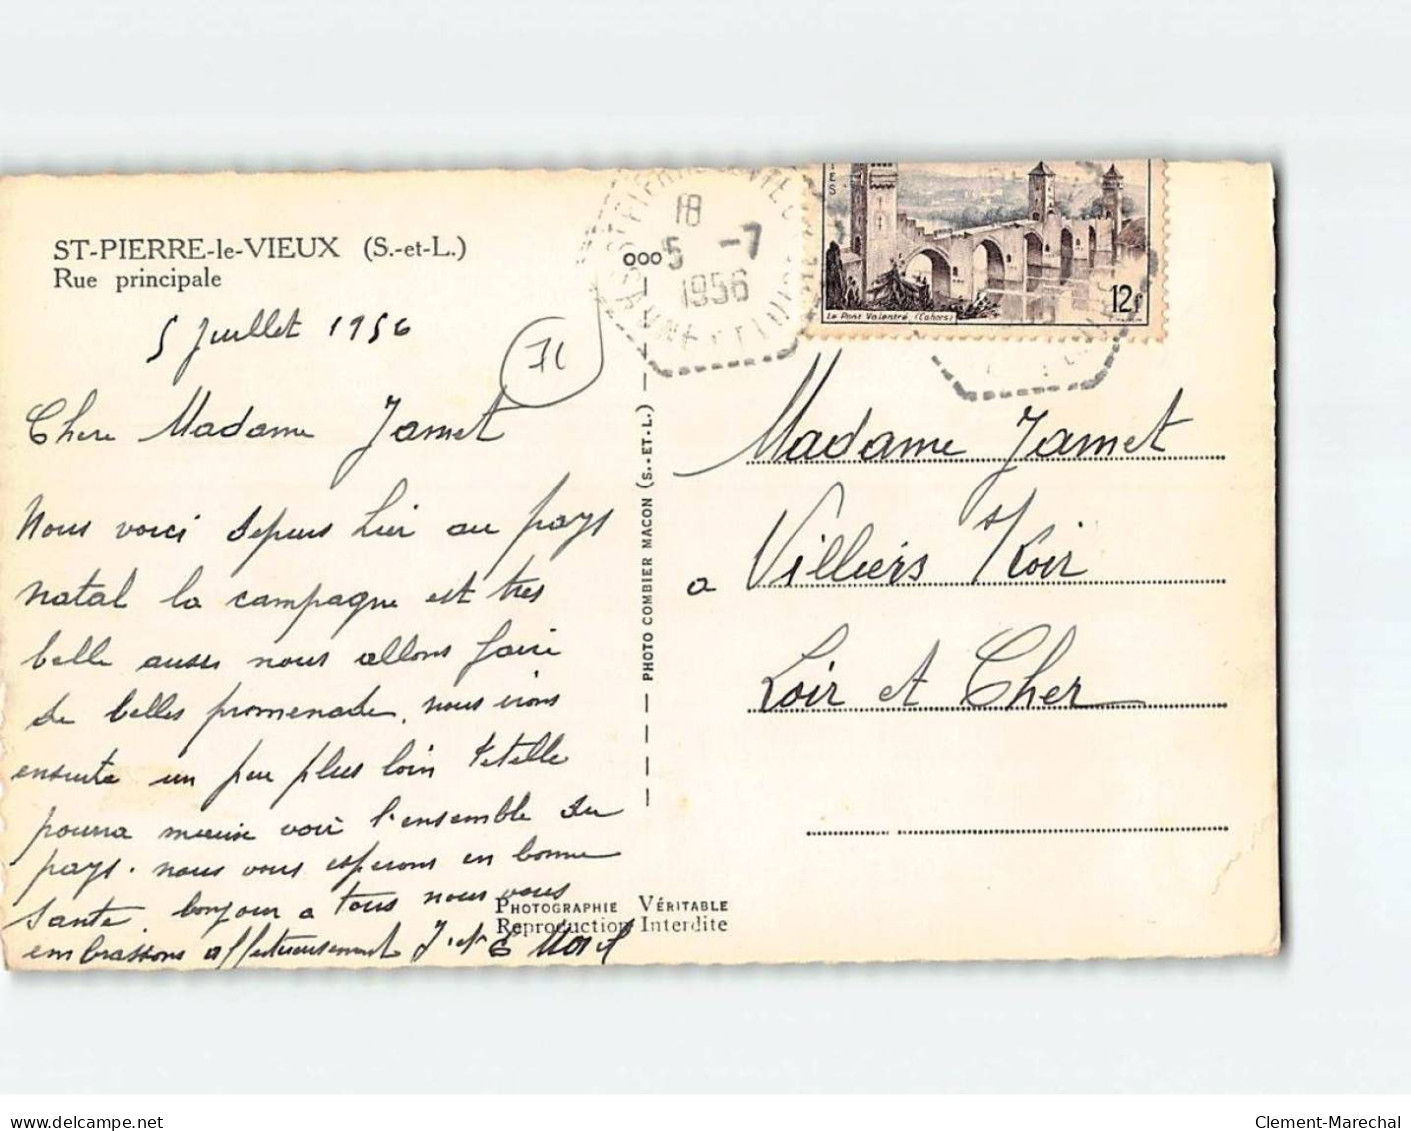 ST-PIERRE-le-VIEUX (S.-et-L.)
Rue principale
5 Juillet 1956
71
Chere Madame Jamet
Nous voici depuis hier au pays
natal la campagne est tres
belle aussi nous allons faire
de belles promenade, nous irons
ensuite un peu plus loin
pourra mieux voir l'ensemble du
pays. nous vous esperons en bonne
santé. bonjour a tous nous vous
embrassons affectueusement J. et
PHOTOGRAPHIE VÉRITABLE
Reproduction Interdite
000
PHOTO COMBIER MACON (S.-ET-L.)
18
5 -7
1956
SAONE ET LOIRE
Le Pont Valentré (Cahors)
12f
Madame Jamet
a Villiers s/Loir
Loir et Cher
delcampe.net
Clement-Marechal